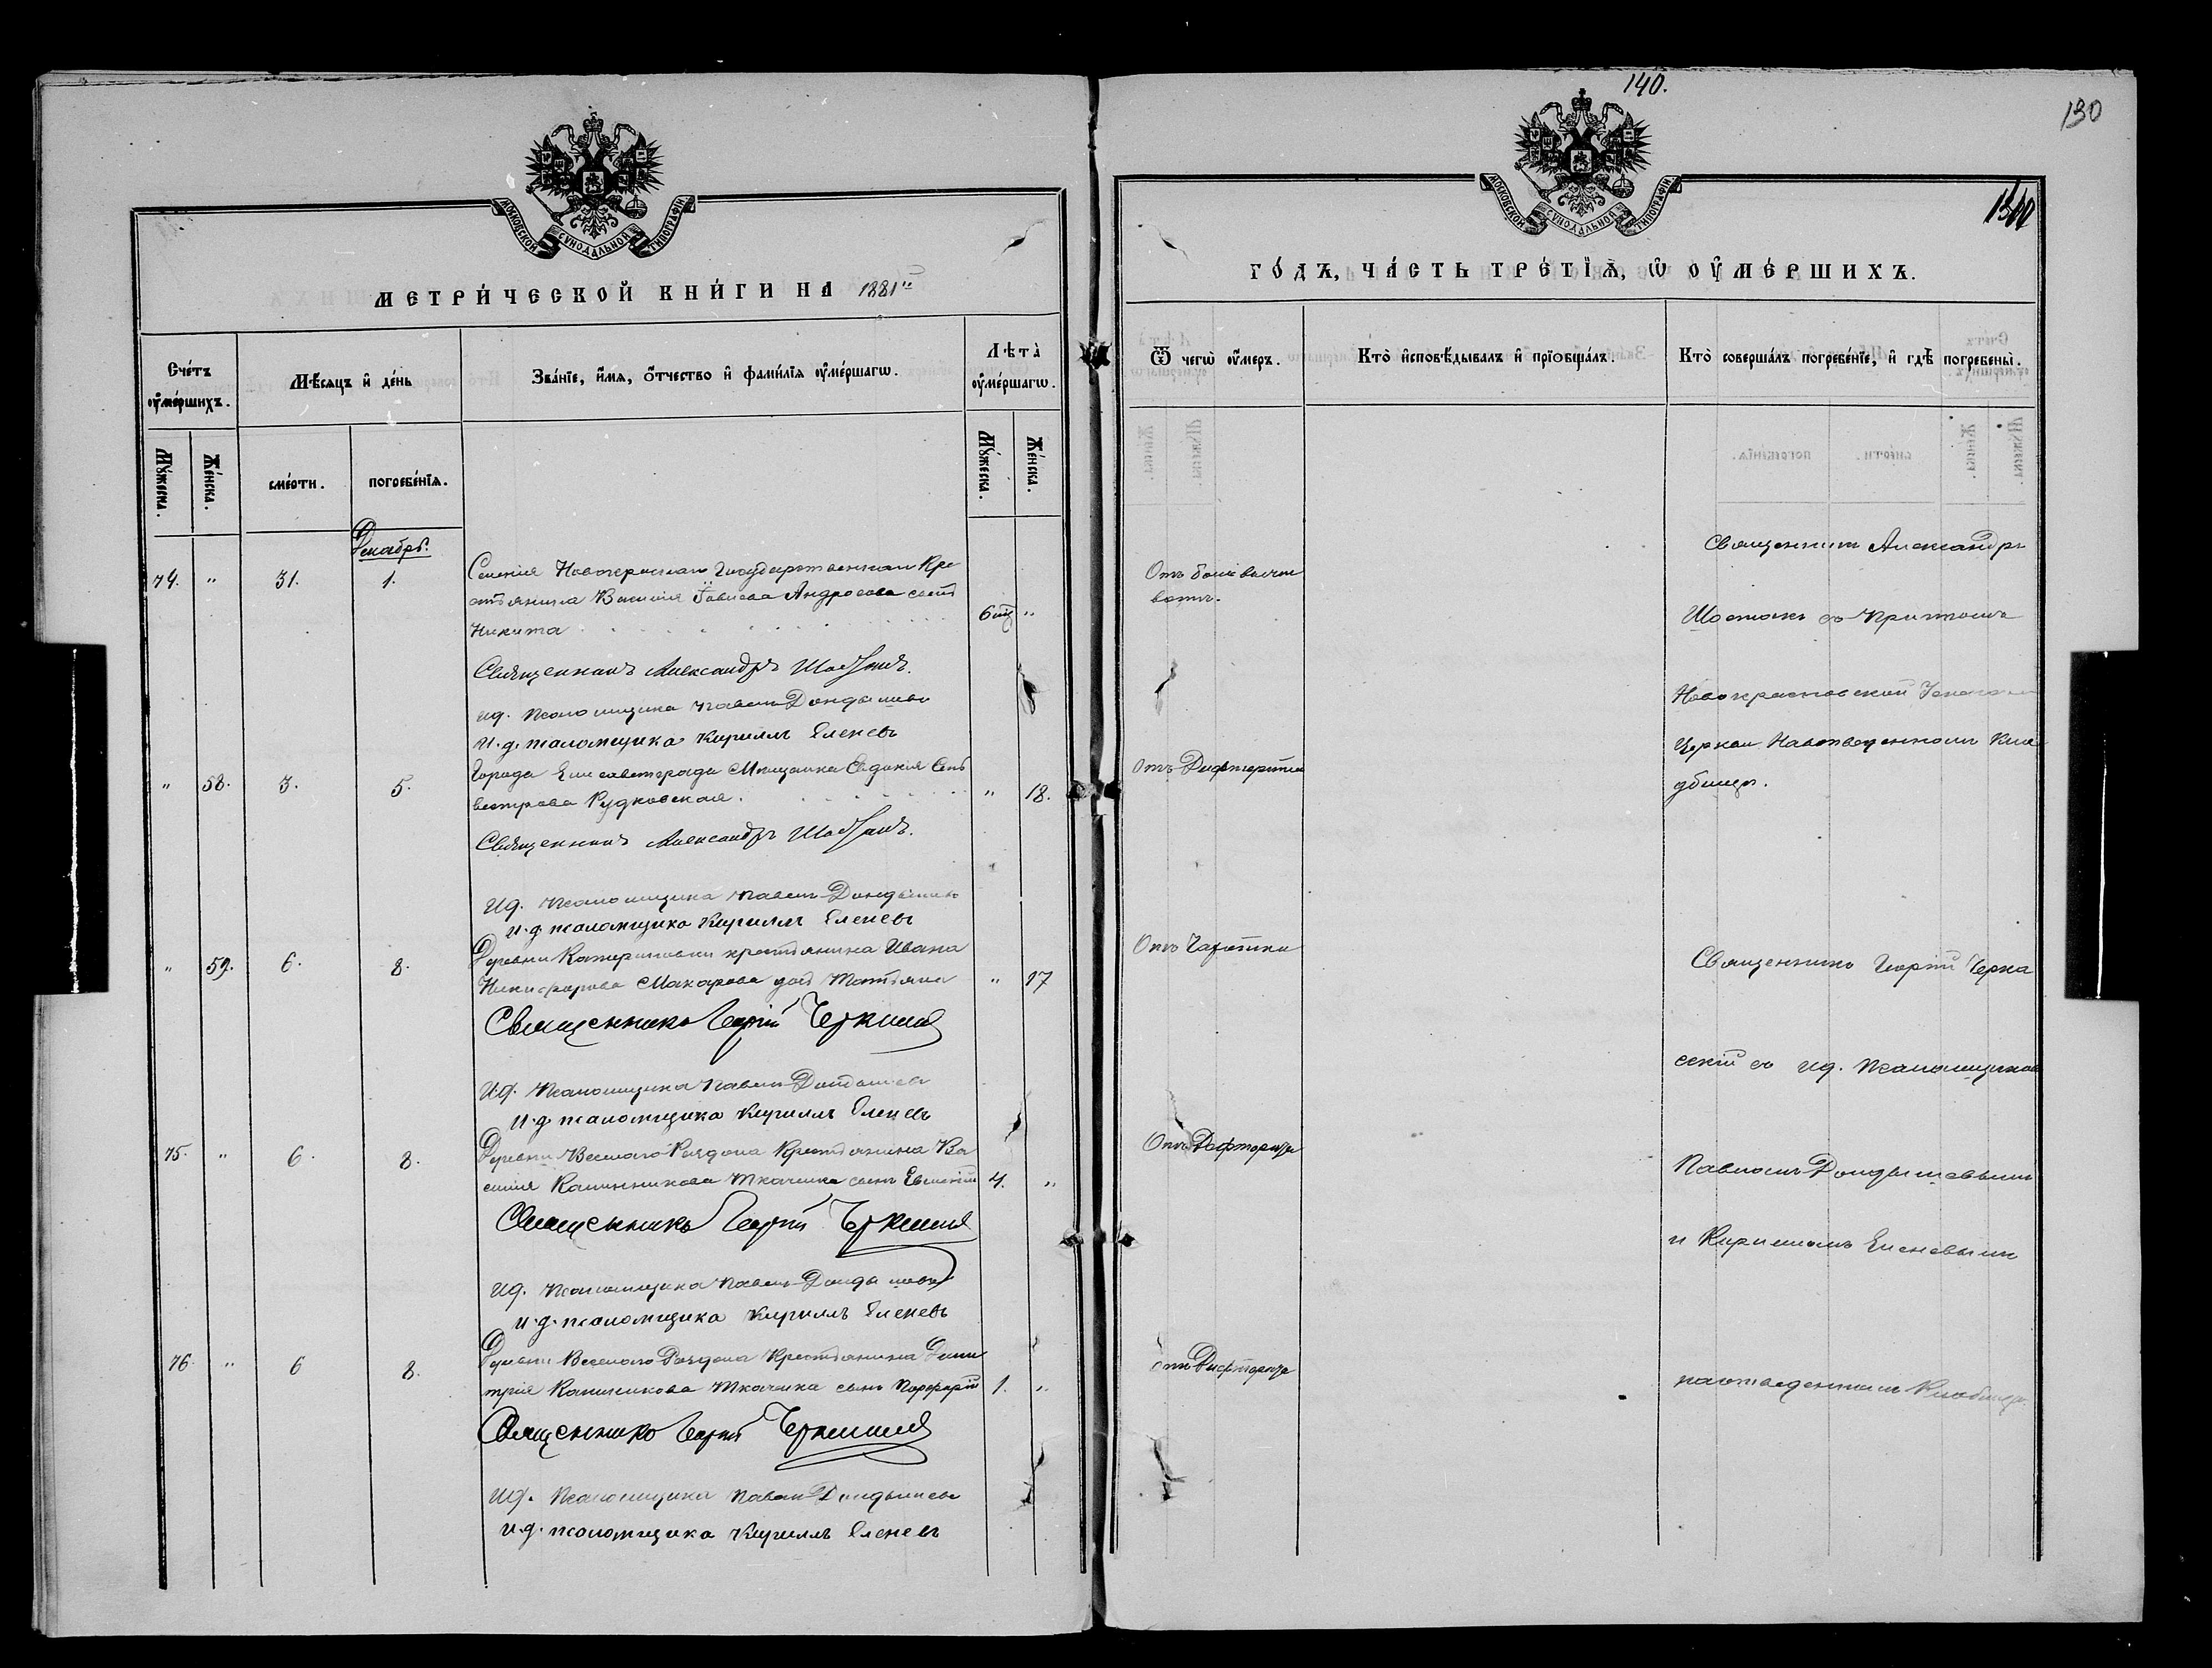 140.
130
МОСКОВСКОЙ СѴНОДАЛЬНОЙ ТИПОГРАФІИ.
МЕТРИ́ЧЕСКОЙ КНИ́ГИ НА 1881й
Сче́тъ оу҆ме́ршихъ.
Мѣ́сяцъ и҆ де́нь
Зва́нїе, и҆́мѧ, ѻ҆́тчество и҆ фами́лїѧ оу҆ме́ршагѡ.
Лѣ́та̀ оу҆ме́ршагѡ.
Мꙋ́жеска.
Же́нска.
сме́рти.
погребе́нїѧ.
Мꙋ́жеска.
Же́нска.
Декабрь.
74. " 31. 1.
Селенія Новокраснаго Государственнаго Кре
стьянина Василія Іовлева Андросова сынъ
Никита 6 мц "
Священникъ Александръ Шостакъ.
ид. псаломщика Павелъ Дондышевъ
и.д. псаломщика Кириллъ Еленевъ
" 58. 3. 5.
Города Елисаветграда Мѣщанка Евдокія Сель
вестрова Рудковская. " 18.
Священникъ Александръ Шостакъ.
ид. псаломщика Павелъ Дондышевъ
и.д. псаломщика Кириллъ Еленевъ
" 59. 6. 8.
Деревни Катериновки крестьянина Ивана
Никифорова Макарова дочь Татьяна " 17
Священникъ Георгій Черкасскій
ид. псаломщика Павелъ Дондышевъ
и.д. псаломщика Кириллъ Еленевъ
75. " 6. 8.
Деревни Веселаго Раздола Крестьянина Ва
силія Калинникова Ткаченка сынъ Евгеній 4. "
Священникъ Георгій Черкасскій
ид. псаломщика Павелъ Дондышевъ
и.д. псаломщика Кириллъ Еленевъ
76. " 6 8.
Деревни Веселаго Раздола Крестьянина Дими
трія Калиникова Ткаченка сынъ Порфирій 1. "
Священникъ Георгій Черкасскій
ид. псаломщика Павелъ Дондышевъ
и.д. псаломщика Кириллъ Еленевъ
МОСКОВСКОЙ СѴНОДАЛЬНОЙ ТИПОГРАФІИ.
ГО́ДЪ, ЧА́СТЬ ТРЕ́ТЇѦ, Ѡ҆ ОУ҆МЕ́РШИХЪ.
Ѿ чегѡ̀ оу҆́меръ.
Кто̀ и҆сповѣ́дывалъ и҆ прїѻбща́лъ.
Кто̀ соверша́лъ погребе́нїе, и҆ гдѣ̀ погребены̀.
Отъ
Отъ Дифтерита
Отъ Чахотки
Отъ Дифтерита
отъ Дифтерита
Священникъ Александръ
Шостакъ съ причтомъ
Новокрасновской
Церкви На отведенномъ Кла
дбищѣ.
Священникъ Георгій Черка
сскій съ ид. псаломщиковъ
Павломъ Дондышевымъ
и Кирилломъ Еленевымъ
на отведенномъ Кладбищѣ.